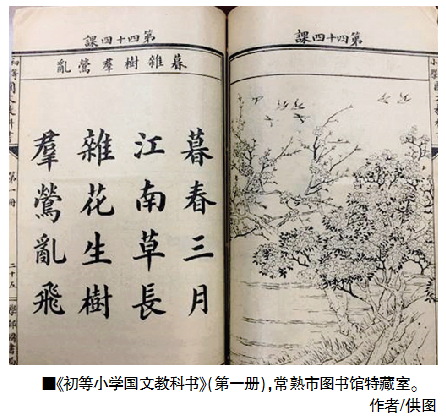 第四十四課
第四十四課
暮雜樹羣鶯亂
暮春三月
江南草長
雜花生樹
羣鶯亂飛
第一冊
二十五
■《初等小学国文教科书》(第一册),常熟市图书馆特藏室。
作者/供图